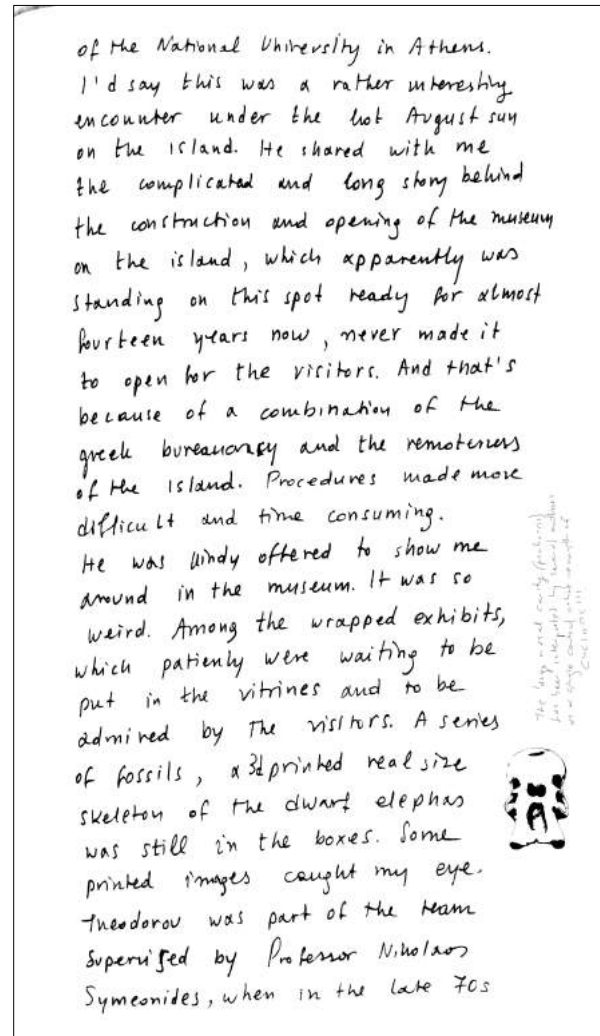 of the National University in Athens.
I'd say this was a rather interesting
encounter under the hot August sun
on the island. He shared with me
the complicated and long story behind
the construction and opening of the museum
on the island, which apparently was
standing on this spot ready for almost
fourteen years now, never made it
to open for the visitors. And that's
because of a combination of the
greek bureaucracy and the remoteness
of the island. Procedures made more
difficult and time consuming.
He was kindly offered to show me
around in the museum. It was so
weird. Among the wrapped exhibits,
which patienly were waiting to be
put in the vitrines and to be
admired by the visitors. A series
of fossils, a 3d printed real size
skeleton of the dwarf elephas
was still in the boxes. Some
printed images caught my eye.
Theodorou was part of the team
supervised by Professor Nikolaos
Symeonides, when in the late 70s
The large nasal cavity
has been interpreted by several authors
as a single central
CYCLOPS!!!